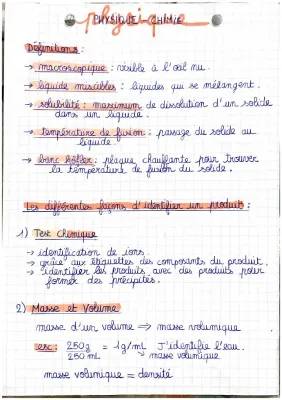 PHYSIQUE - CHIMIE
physique
Définitions :
→ macroscopique : visible à l'œil nu.
→ liquide miscibles : liquides qui se mélangent.
→ solubilité : maximum de dissolution d'un solide
dans un liquide.
→ température de fusion : passage du solide au
liquide.
→ banc köfler : plaque chauffante pour trouver
la température de fusion du solide.
Les différentes façons d'identifier un produit :
1) Test chimique
→ identification de ions.
→ grâce aux étiquettes des composants du produit.
→ identifier les produits avec des produits pour
former des précipités.
2) Masse et Volume
masse d'un volume ⇒ masse volumique
ex : 250g / 250 mL = 1g/mL J'identifie l'eau.
↘ masse volumique
masse volumique = densité